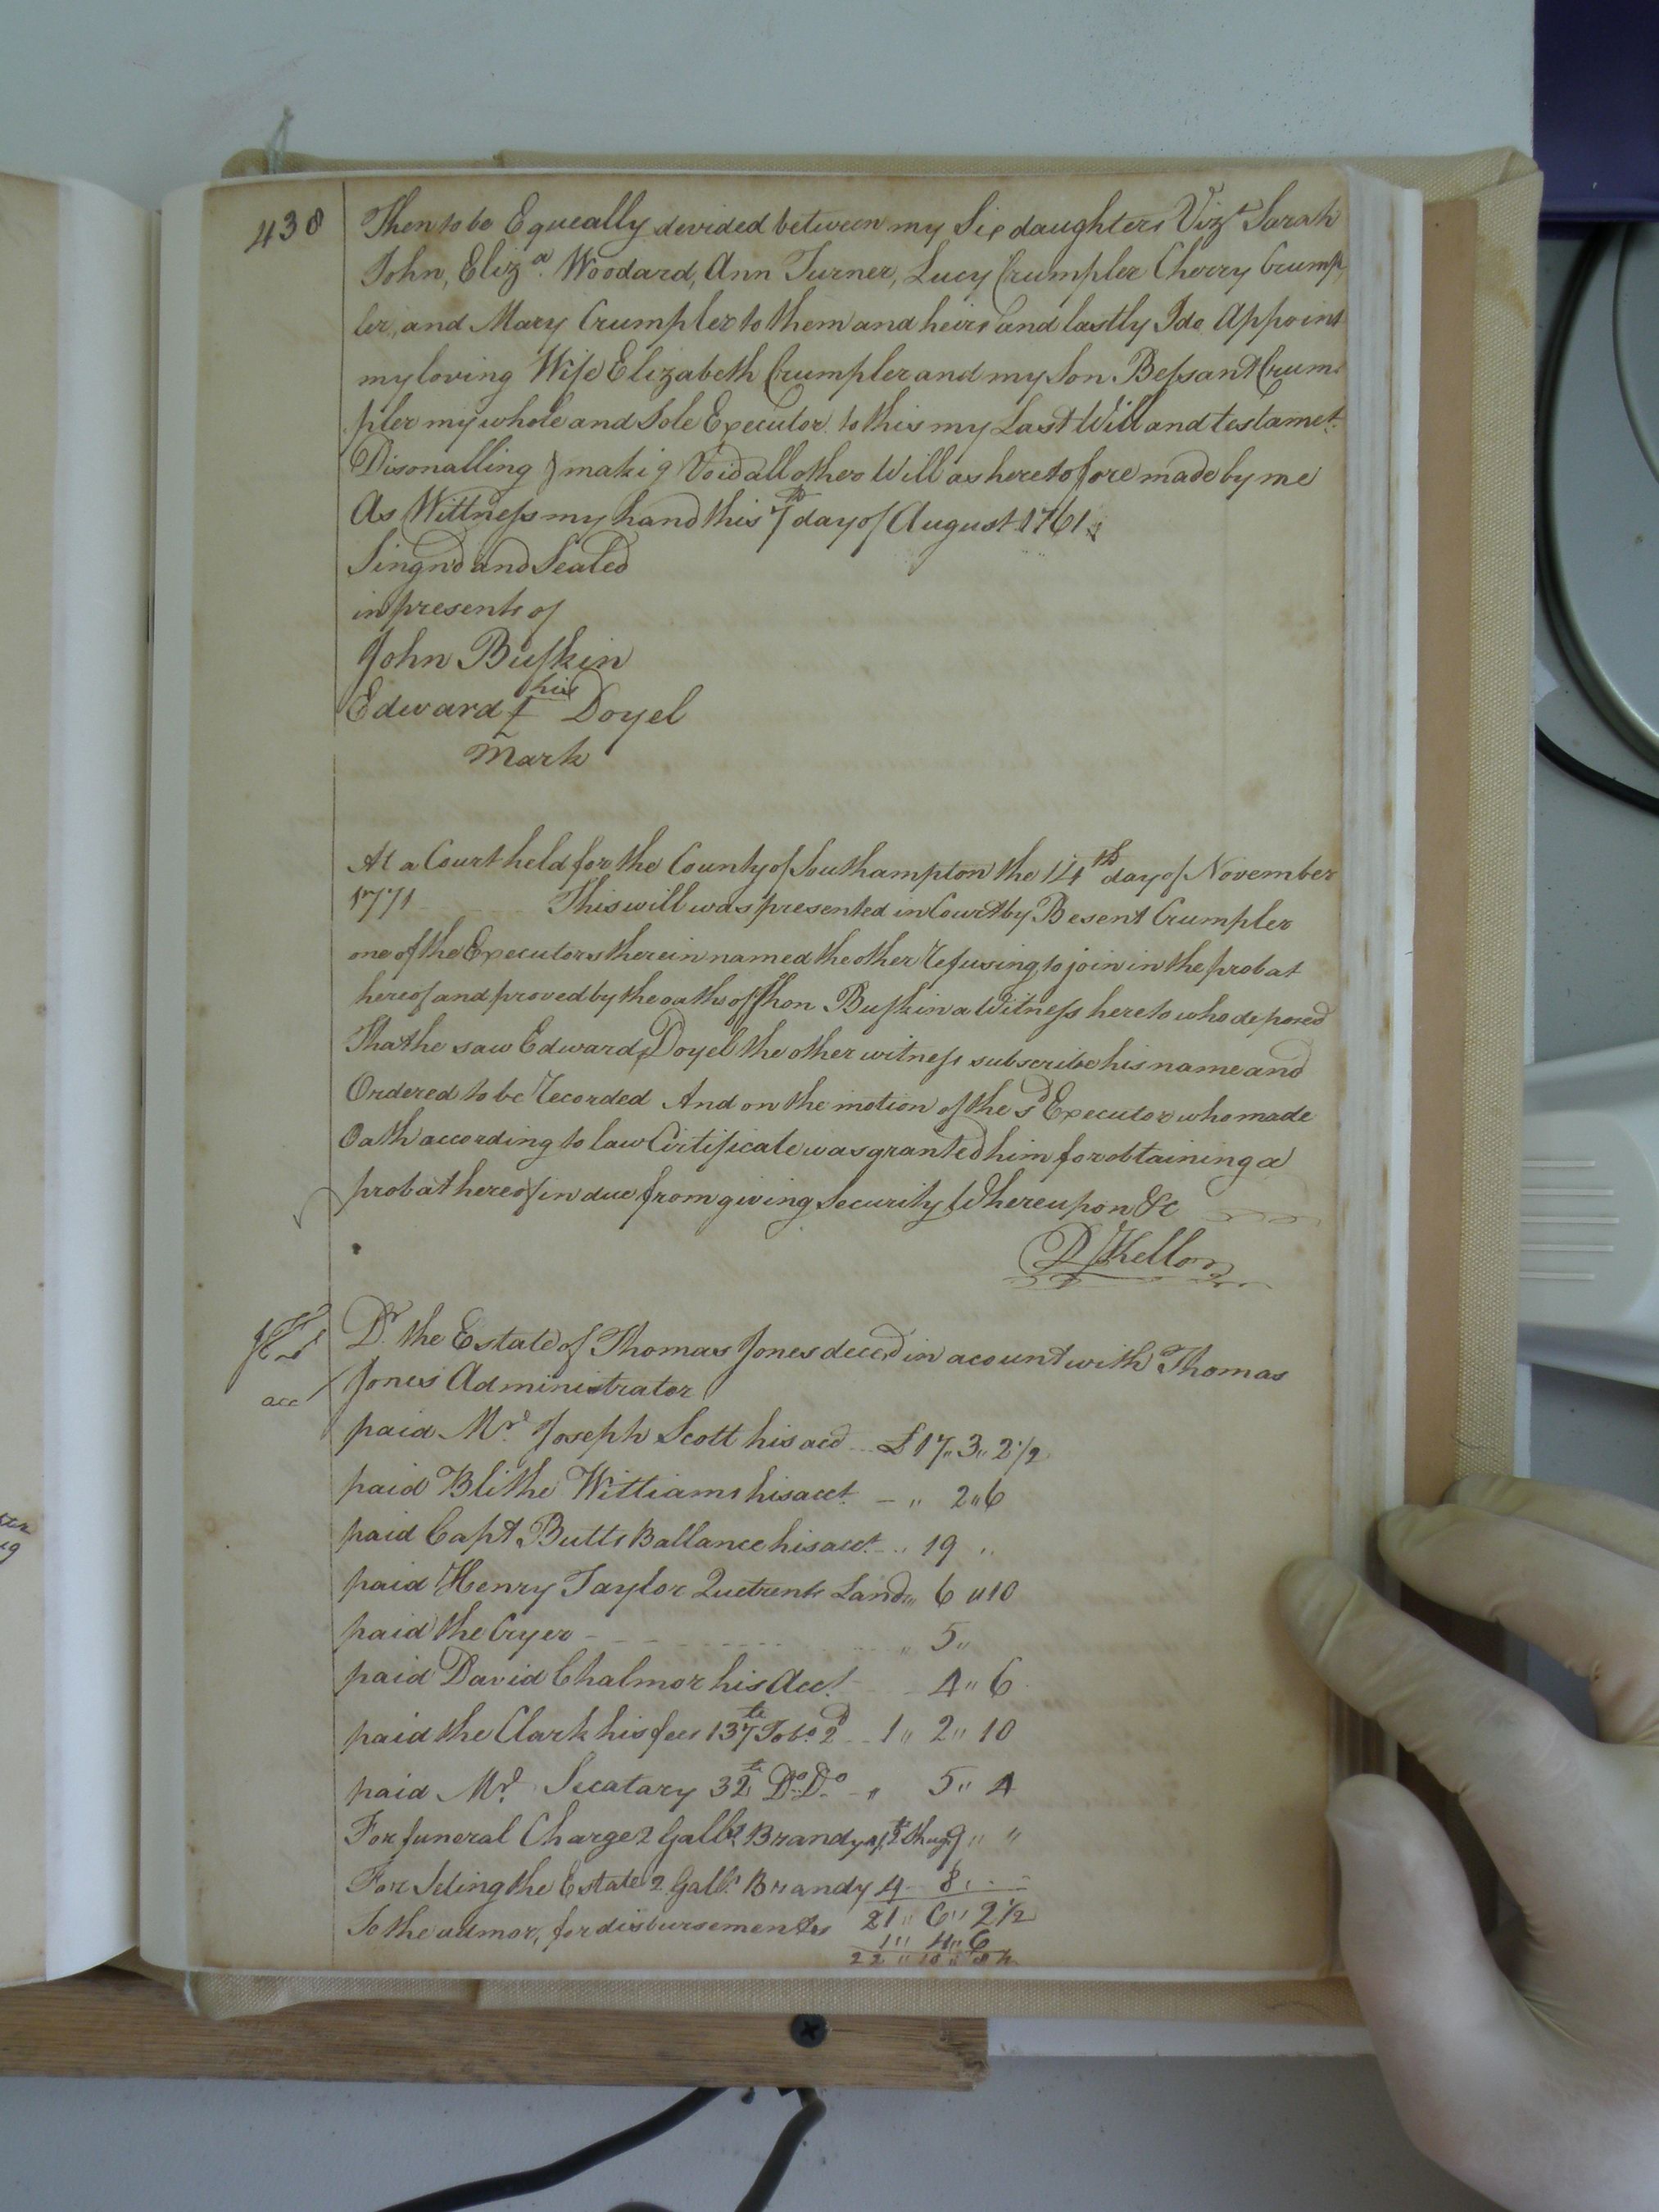 438
Then to be Equeally devided between my Six daughters Vizt Sarah
John, Eliza. Woodard, Ann Turner, Lucy Crumpler Cherry Crump
ler, and Mary Crumpler to them and heirs and lastly I do Appoint
my loving Wife Elizabeth Crumpler and my Son Bessant Crum
pler my whole and Sole Executor to this my Last Will and testamet.
Disonalling & makig Void all other Will as heretofore made by me
As Wittness my hand this 7th day of August 1761
Singnd and Sealed
in presents of
John Buskin
his
Edward Doyel
Mark
At a Court held for the County of Southampton the 14th day of November
1771 This will was presented in Court by Besent Crumpler
one of the Executors therein named the other Refusing to join in the probat
hereof and proved by the oaths of Jhon Buskin a Witness hereto who deposed
That he saw Edward Doyel the other witness subscribe his name and
Ordered to be Recorded And on the motion of the sd Executor who made
Oath according to law Cirtificate was granted him for obtaining a
probat hereof in due from giving Security Whereupon &c
Dr. the Estate of Thomas Jones decd in acount with Thomas
acc Jones Administrator
paid Mr. Joseph Scott his acct £ 17,, 3,, 2 1/2
paid Blithe Williams his acct. - ,, 2,, 6
paid Capt Butts Ballance his acct. ,, 19 ,,
paid Henry Taylor Quetrents Land ,, 6 ,, 10
paid the Cryer ,, 5,,
paid David Chalmor his Acct. 4,, 6
paid the Clark his fees 137 Tobo. 2d 1,, 2,, 10
paid Mr. Secatary 32 Do. Do ,, 5,, 4
For funeral Charge 2 Galls. Brandy 9,, ,,
For Seling the Estate 2 Galls. Brandy 4 8
21,, 6,, 2 1/2
To the admor, for disbursements
1,, 4,, 6
22 ,, 10 ,, 8 1/2